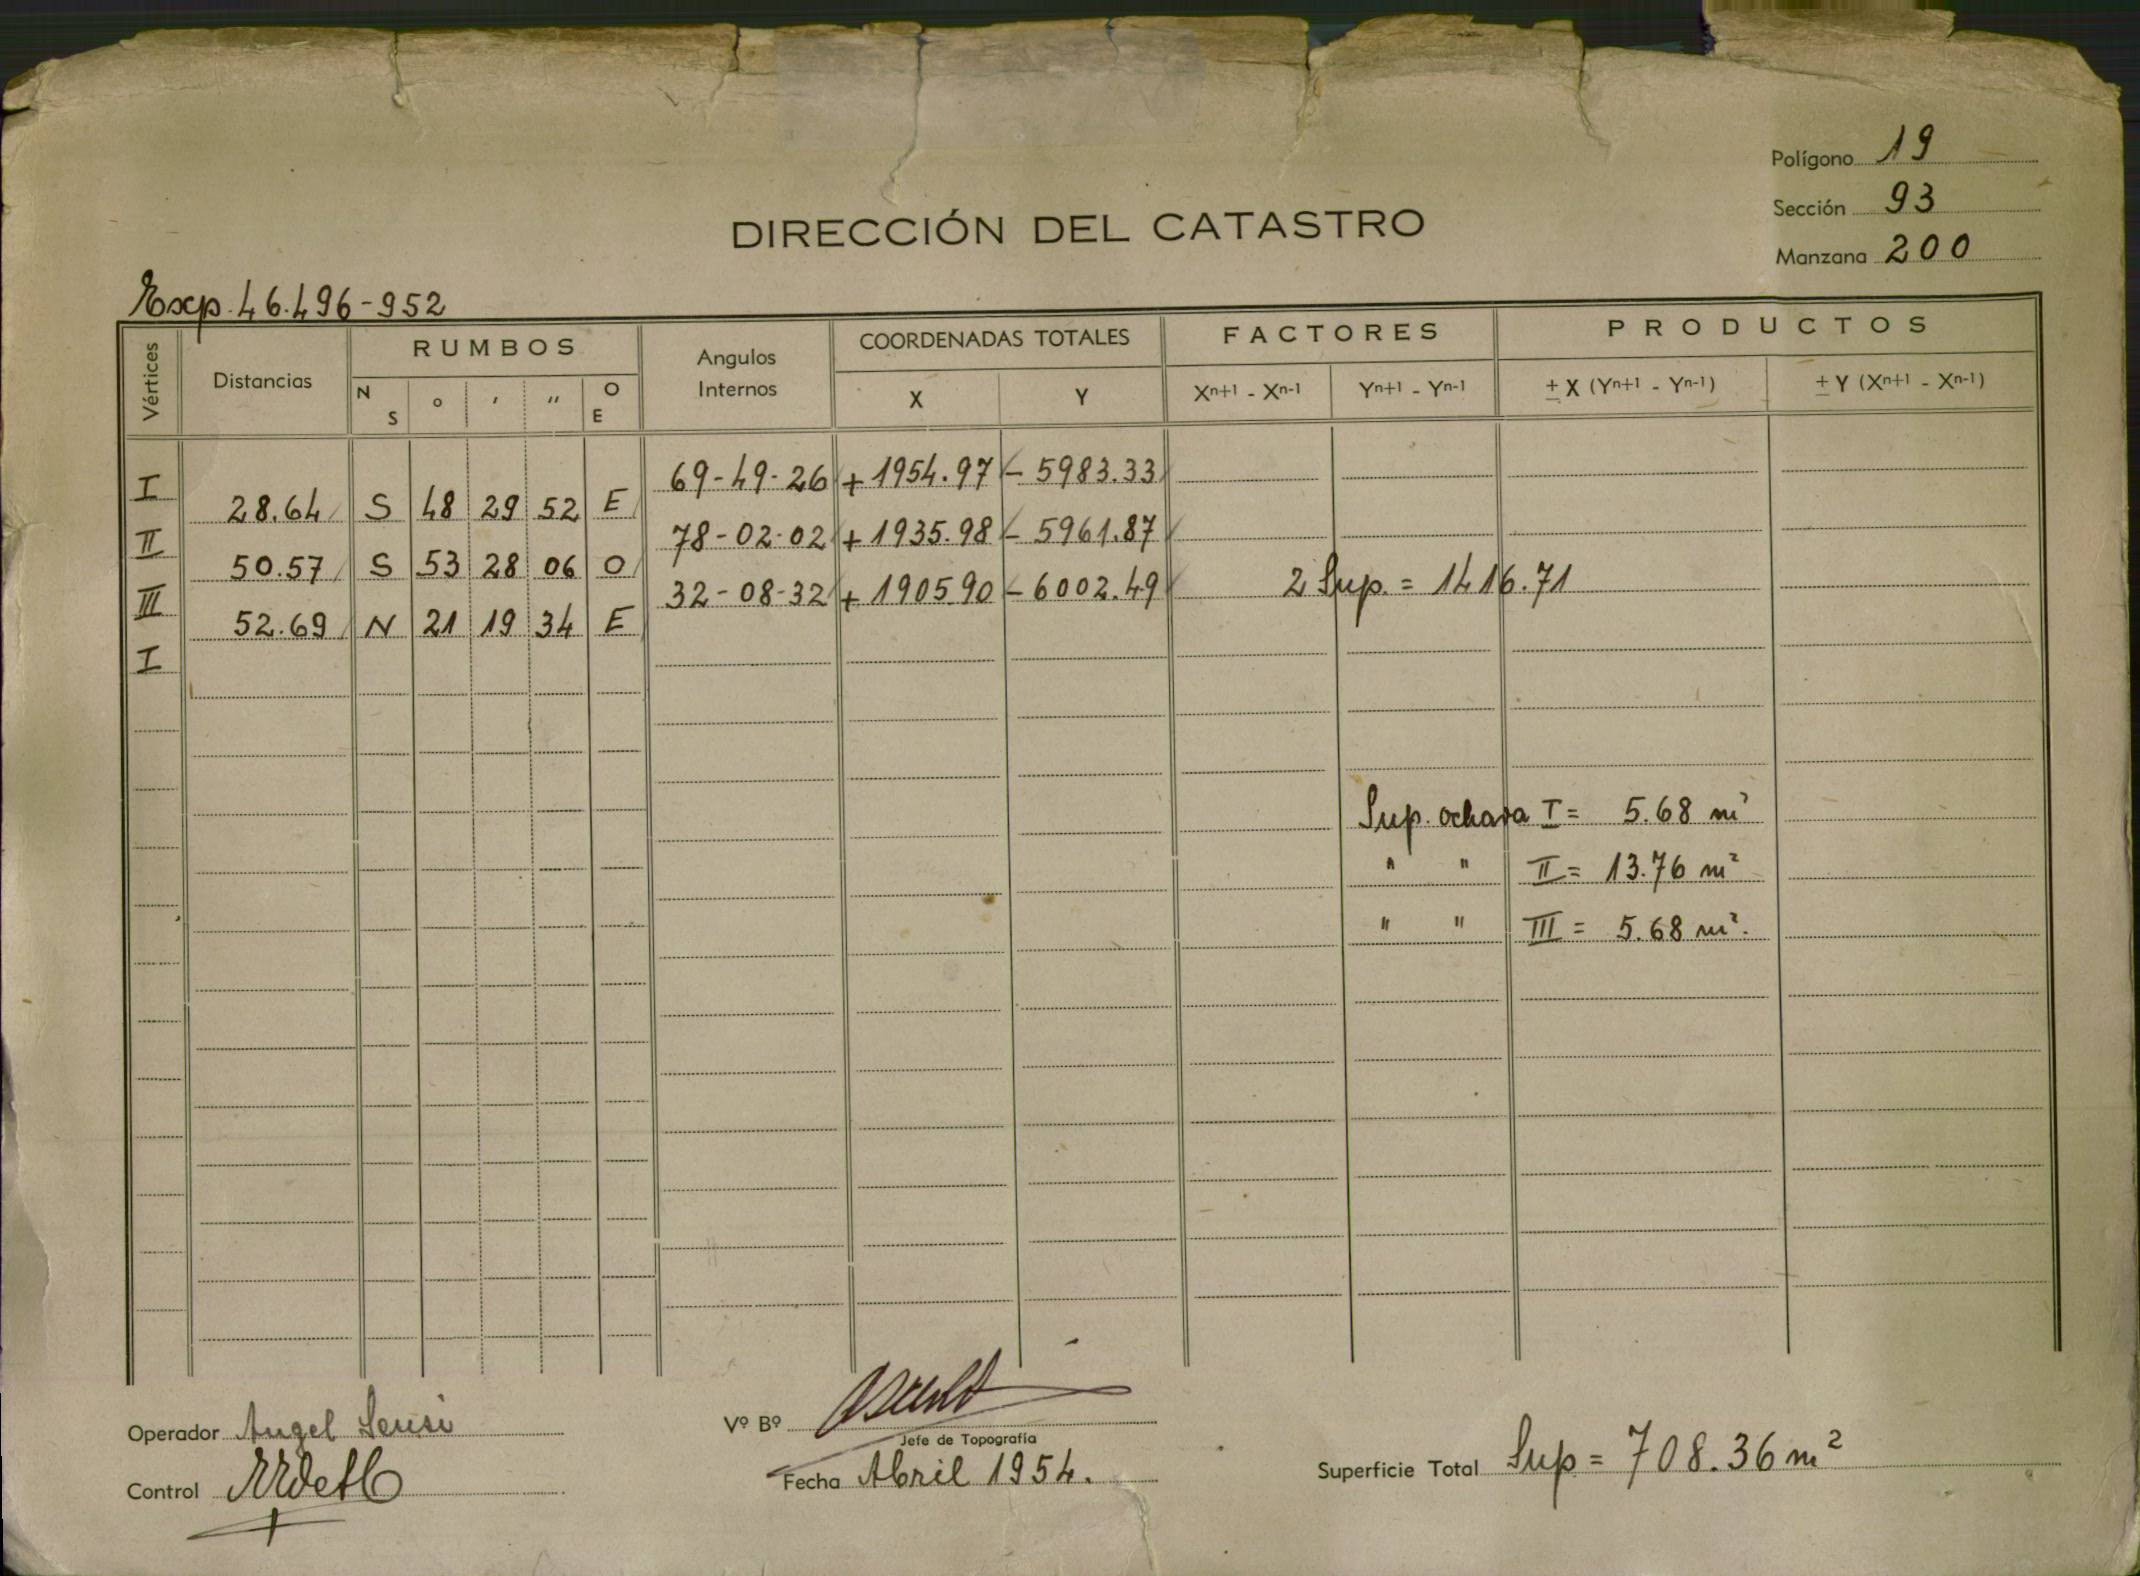 Polígono 19
Sección 93
Manzana 200
DIRECCIÓN DEL CATASTRO
Exp. 46.496-952
Vértices Distancias RUMBOS Angulos Internos COORDENADAS TOTALES FACTORES PRODUCTOS
N S ° ' " O E X Y Xn+1 - Xn-1 Yn+1 - Yn-1 ± X (Yn+1 - Yn-1) ± Y (Xn+1 - Xn-1)
I 69-49-26 + 1954.97 - 5983.33
28.64 S 48 29 52 E
II 78-02-02 + 1935.98 - 5961.87
50.57 S 53 28 06 O
III 32-08-32 + 1905.90 - 6002.49 2 Sup. = 1416.71
52.69 N 21 19 34 E
I
Sup. ochava I = 5.68 m²
" " II = 13.76 m²
" " III = 5.68 m².
Operador Angel Sensi
Vº Bº
Jefe de Topografía
Control
Fecha Abril 1954.
Superficie Total Sup = 708.36 m²